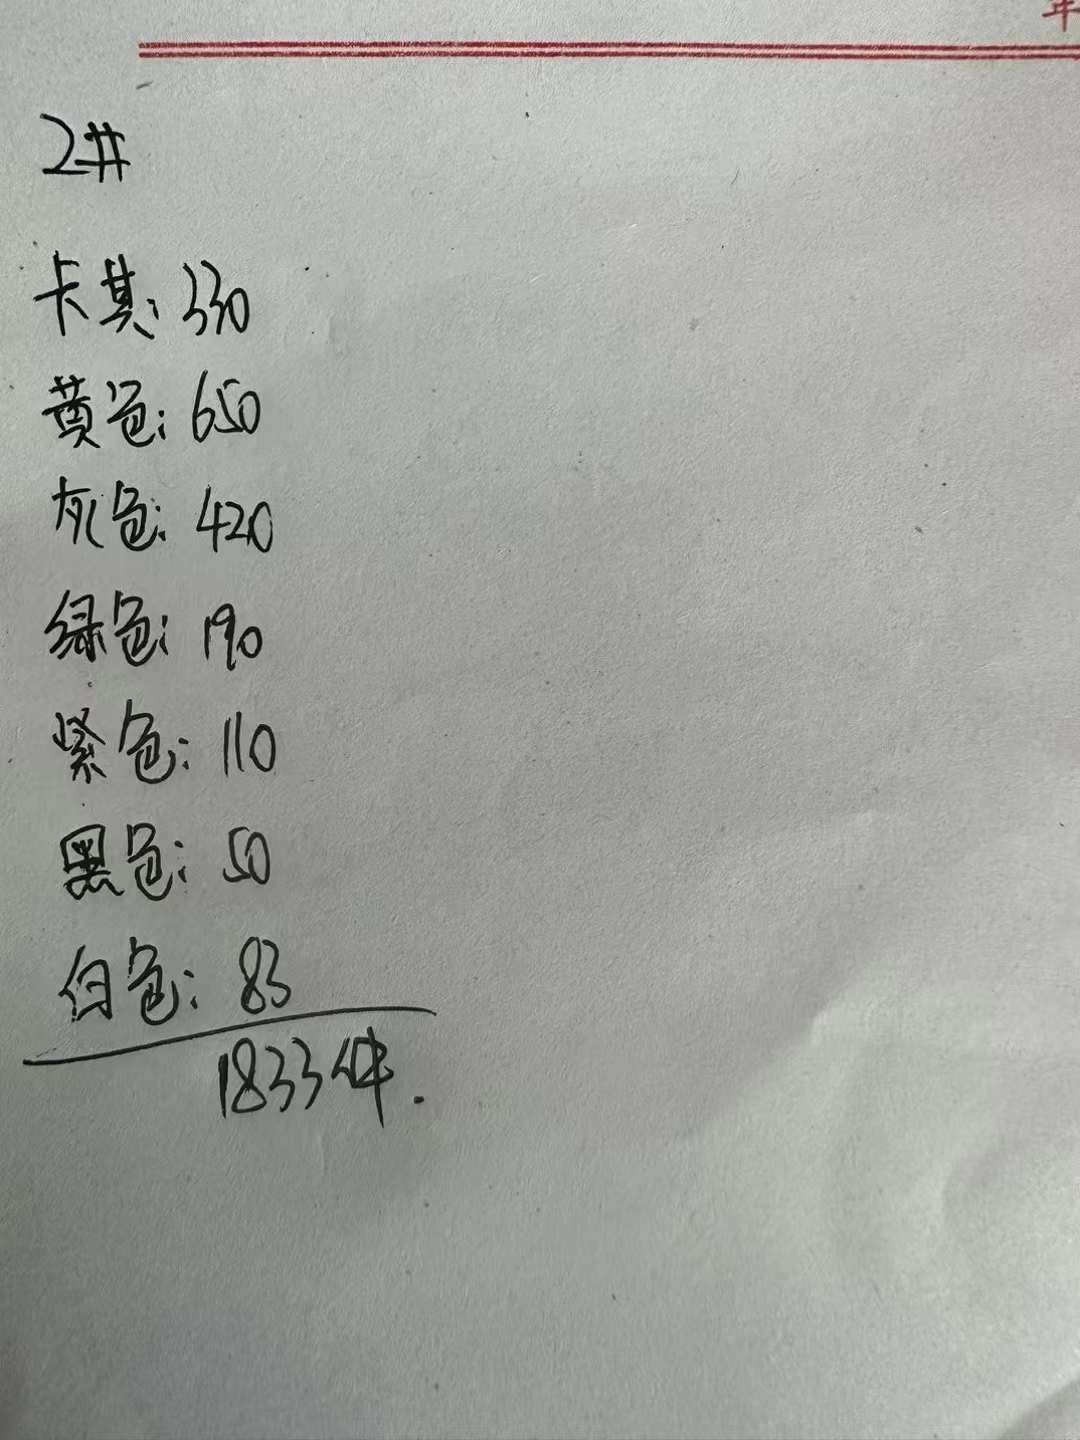 年
2#
卡其：330
黄色：650
灰色：420
绿色：190
紧色：110
黑色：50
白色：83
1833件.